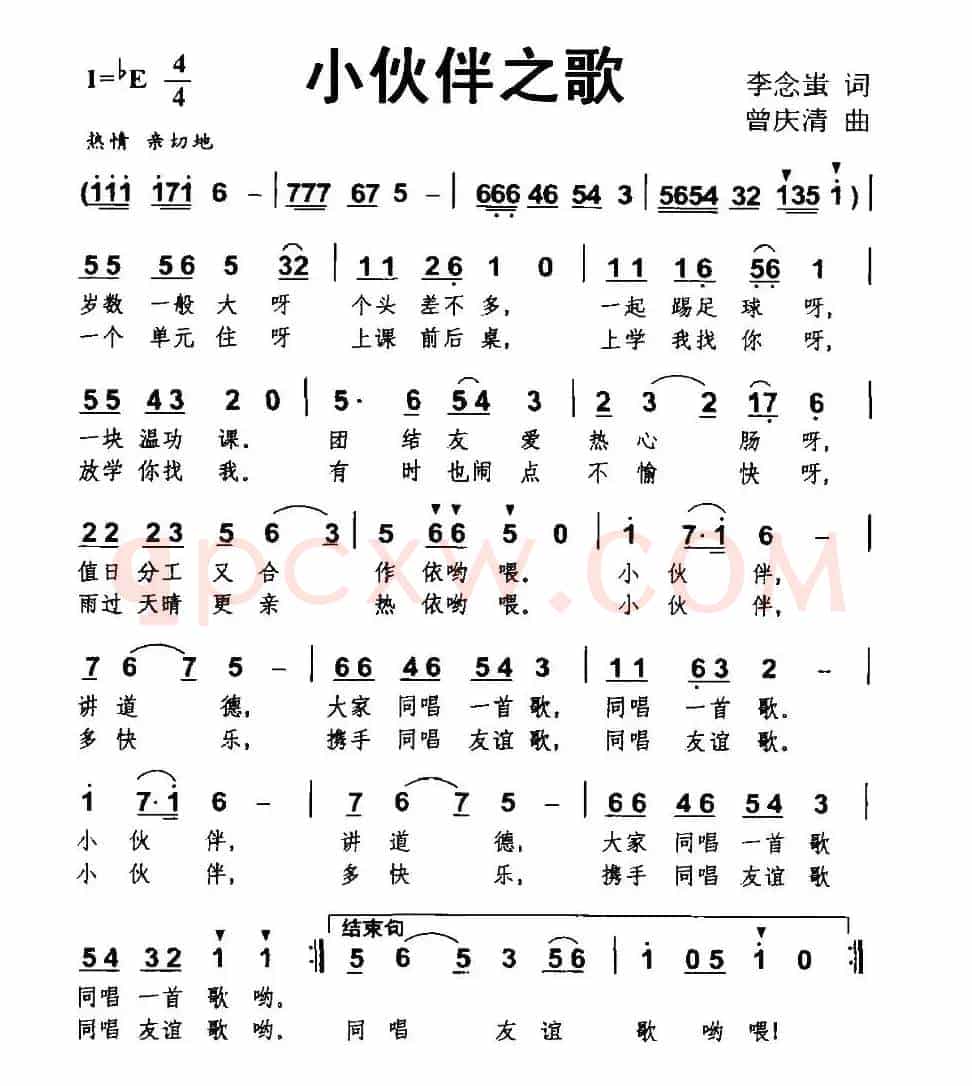 小伙伴之歌
1=♭E 4/4
李念蚩 词
曾庆清 曲
热情 亲切地
(111 171 6 - | 777 67 5 - | 666 46 54 3 | 5654 32 135 1 ) |
55 56 5 32 | 11 26 1 0 | 11 16 56 1 |
岁数 一般 大 呀 个头 差不 多, 一起 踢足 球 呀,
一个 单元 住 呀 上课 前后 桌, 上学 我找 你 呀,
55 43 2 0 | 5· 6 54 3 | 2 3 2 17 6 |
一块 温功 课. 团 结友 爱 热 心 肠 呀,
放学 你找 我. 有 时 也闹 点 不 愉 快 呀,
22 23 5 6 3 | 5 66 5 0 | 1 7·1 6 - |
值日 分工 又 合 作 依哟 喂. 小 伙 伴,
雨过 天晴 更 亲 热 依哟 喂. 小 伙 伴,
qpcxw.COM
7 6 7 5 - | 66 46 54 3 | 11 63 2 - |
讲 道 德, 大家 同唱 一首 歌, 同唱 一首 歌.
多 快 乐, 携手 同唱 友谊 歌, 同唱 友谊 歌.
1 7·1 6 - | 7 6 7 5 - | 66 46 54 3 |
小 伙 伴, 讲 道 德, 大家 同唱 一首 歌
小 伙 伴, 多 快 乐, 携手 同唱 友谊 歌
结束句
54 32 1 1 :| 5 6 5 3 56 | 1 05 1 0 :|
同唱 一首 歌 哟.
同唱 友谊 歌 哟. 同 唱 友 谊 歌 哟 喂!